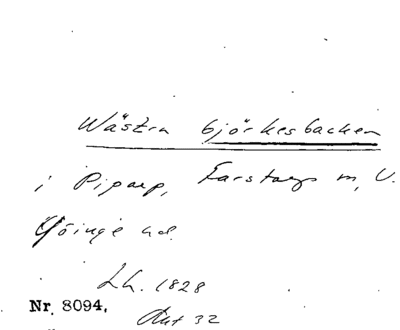 Wästra björkesbacken
i Piparp, Farstorps sn, V.
Göinge hd.
Lh. 1828
Nr. 8094.
Akt 32